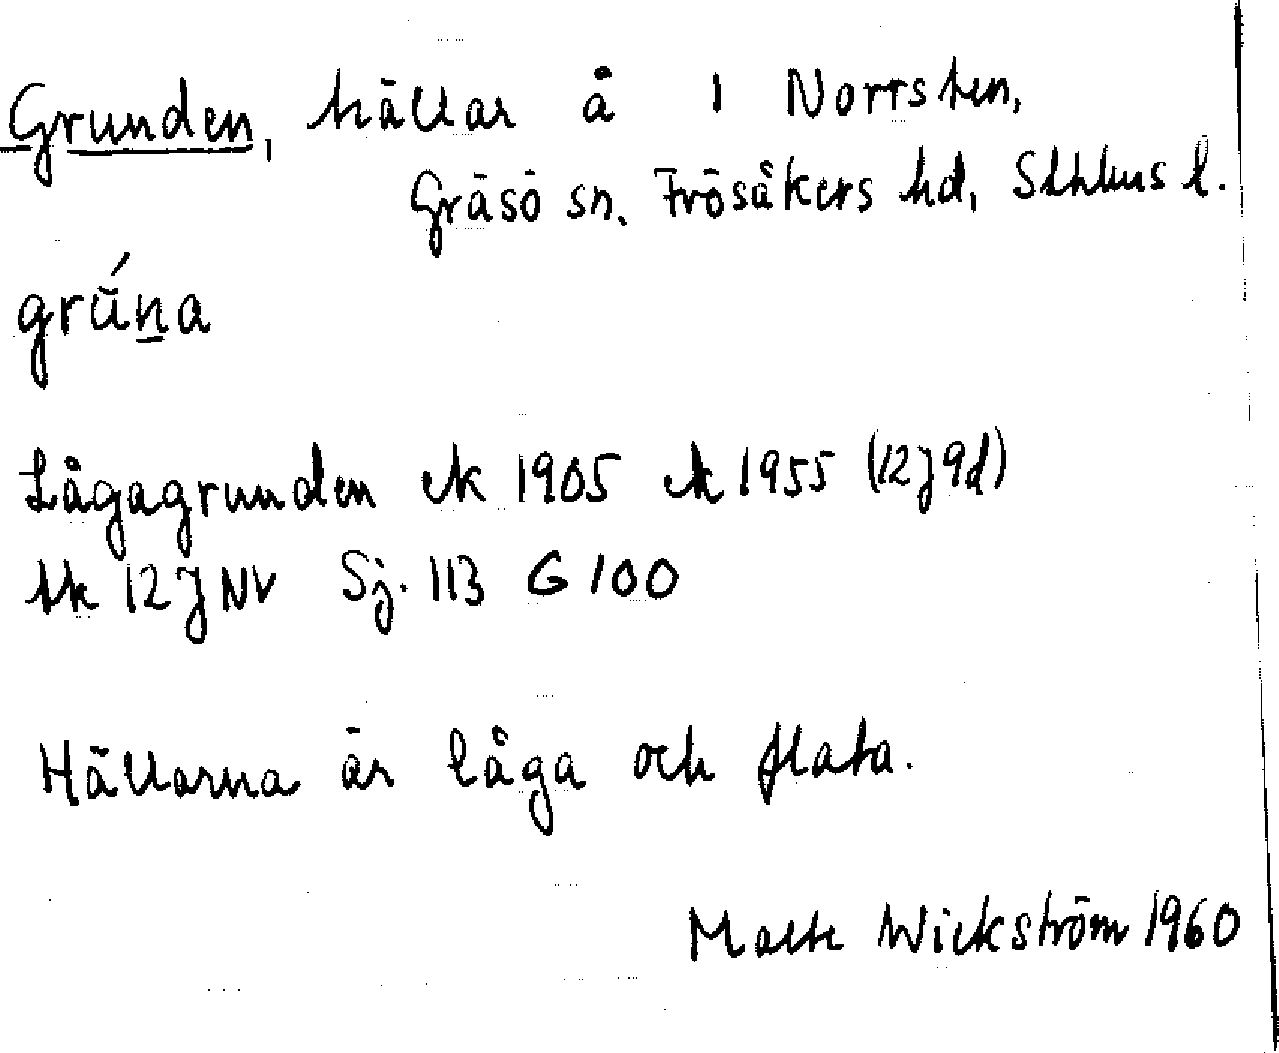 Grunden, hällar å 1 Norrsten,
Gräsö sn. Frösåkers hd, Sthlms l.
grŭ́n̲a
Lågagrunden ek 1905 ek 1955 (12J9d)
tk 12J NV Sj. 113 G 100
Hällarna är låga och flata.
Malte Wickström 1960